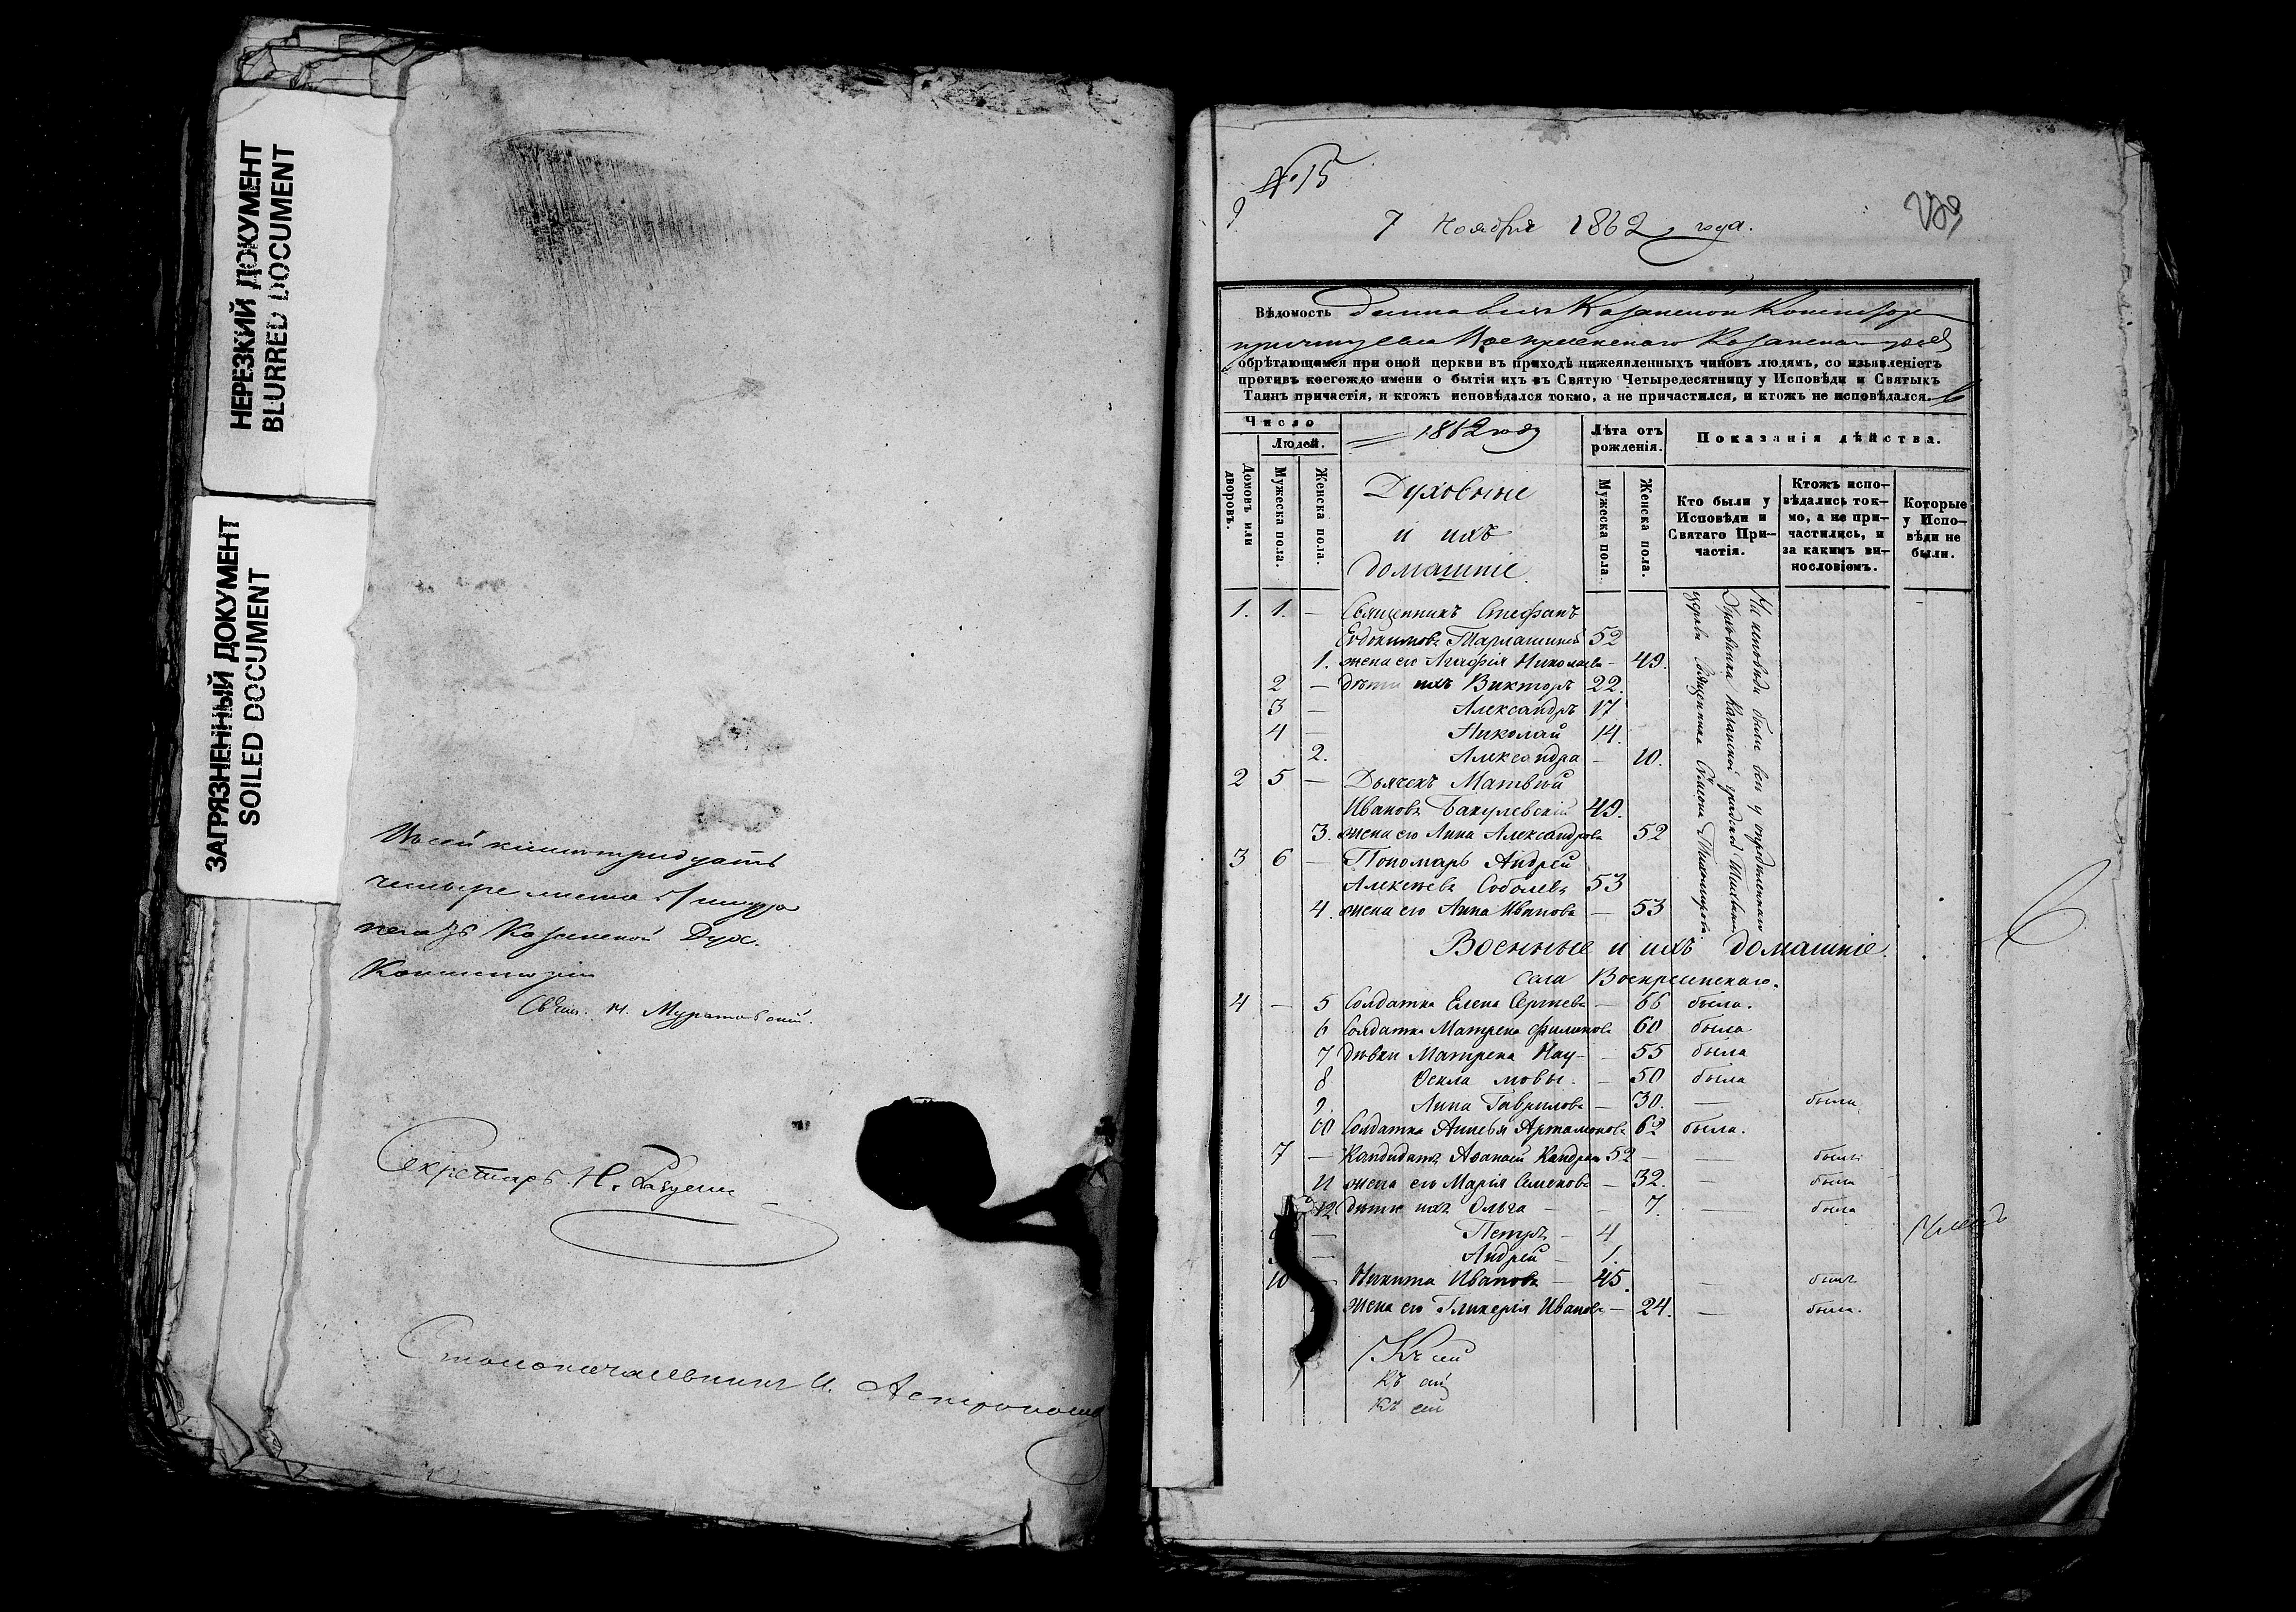 НЕРЕЗКИЙ ДОКУМЕНТ
BLURRED DOCUMENT
ЗАГРЯЗНЕННЫЙ ДОКУМЕНТ
SOILED DOCUMENT
тридцать
четыре листа
Казанской Дух.
Консисторіи
Свящ. М.
Секретарь Н.
Столоначальникъ И.
№ 15
7 Ноября 1862 года.
Вѣдомость Казанской
Воскресенскаго Казанскаго
обрѣтающимся при оной церкви въ приходѣ нижеявленныхъ чиновъ людямъ, со изъявленіетъ
противъ коегождо имени о бытіи ихъ въ Святую Четыредесятницу у Исповѣди и Святыхъ
Таинъ причастія, и ктожъ исповѣдался токмо, а не причастился, и ктожъ не исповѣдался. в
Число
Людей.
1862 году
Лѣта отъ рожденія.
Показанія дѣйства.
Домовъ или дворовъ.
Мужеска пола.
Женска пола.
Духовные
и ихъ
домашніе
Мужеска пола.
Женска пола.
Кто были у Исповѣди и Святаго При-частія.
Ктожъ испо-вѣдались ток-мо, а не при-частились, и за какимъ ви-нословіемъ.
Которые у Испо-вѣди не были.
1. 1. — Священникъ Стефанъ
Евдокимовъ 52
1. жена его Агафія Николаева — 49.
2 — дѣти ихъ Викторъ 22.
3 — Александръ 17
4 — Николай 14.
2. Александра — 10.
2 5 — Дьячекъ Матвѣй
Ивановъ Бакулевскій 49.
3. жена его Анна Александрова 52
3 6 — Пономарь Андрей
Алексѣевъ Соболевъ 53
4. жена его Анна Иванова — 53
На исповѣди были всѣ у опредѣленнаго
Духовника Казанской градской Тихвинской
церкви Священника
Военные и ихъ домашніе.
села Воскресенскаго.
4 — 5 Солдатка Елена Сергѣева — 66 была.
6 Солдатка Матрена Филипова 60 была
7 дѣвки Матрена Нау- — 55 была
8 Ѳекла мовы. — 50 была
9. Анна Гаврилова — 30. — была
10 Солдатка Артамонова 62 была.
7 — Кандидатъ Аѳанасій 52 — — былъ
11 жена его Марія Семенова — 32. — была
12 дѣти ихъ Ольга — — 7. — была
— Петръ — 4
— Андрей — 1.
10 — Никита Ивановъ — 45. — былъ
жена его Гликерія Иванова — 24. — была.
Къ сей
къ сей
къ сей